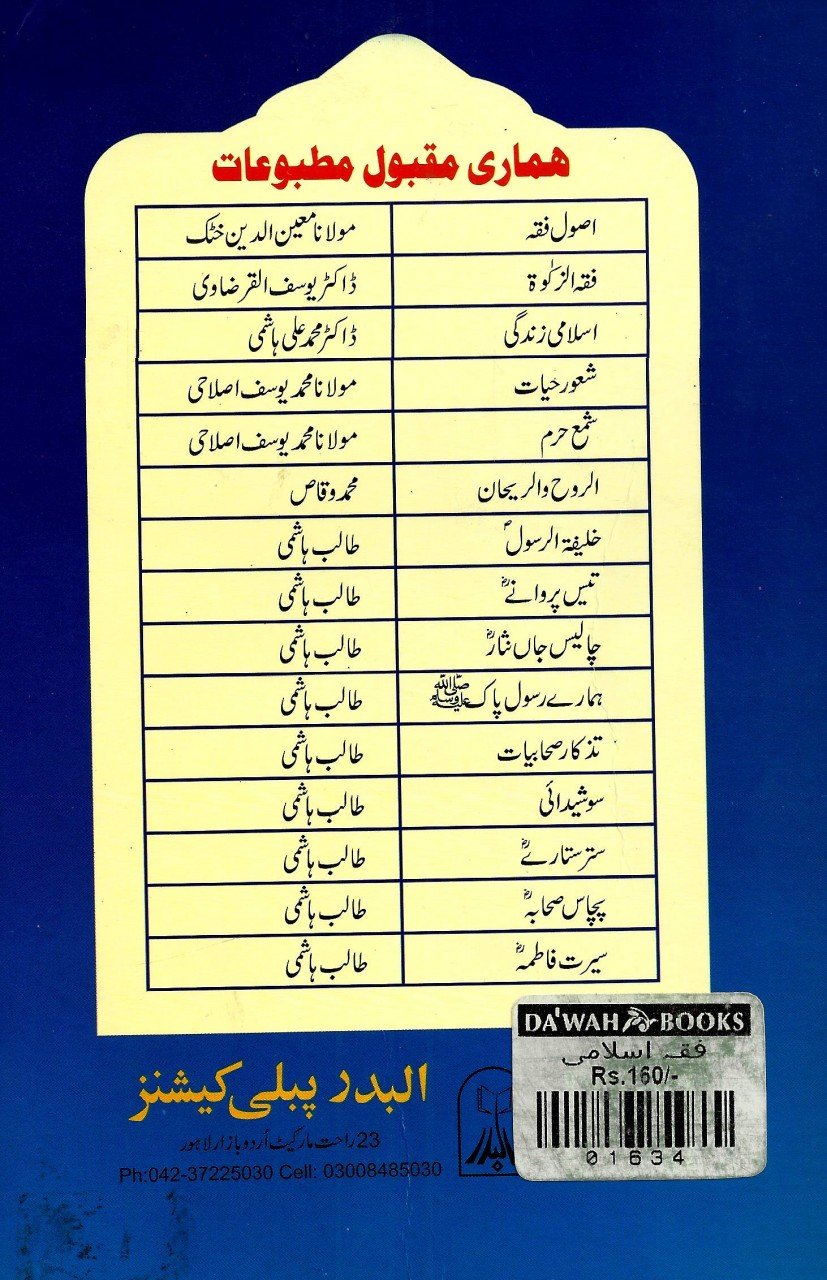 ہماری مقبول مطبوعات
اصول فقہ مولانا معین الدین خٹک
فقہ الزکوٰۃ ڈاکٹر یوسف القرضاوی
اسلامی زندگی ڈاکٹر محمد علی ہاشمی
شعور حیات مولانا محمد یوسف اصلاحی
شمع حرم مولانا محمد یوسف اصلاحی
الروح والریحان محمد وقاص
خلیفۃ الرسولؐ طالب ہاشمی
تیس پروانےؓ طالب ہاشمی
چالیس جاں نثارؓ طالب ہاشمی
ہمارے رسول پاک ﷺ طالب ہاشمی
تذکار صحابیات طالب ہاشمی
سو شیدائی طالب ہاشمی
ستر ستارےؓ طالب ہاشمی
پچاس صحابہؓ طالب ہاشمی
سیرت فاطمہؓ طالب ہاشمی
البدر پبلی کیشنز
23 راحت مارکیٹ اُردو بازار لاہور
Ph:042-37225030 Cell: 03008485030
البدر
DA'WAH BOOKS
فقہ اسلامی
Rs.160/-
01634